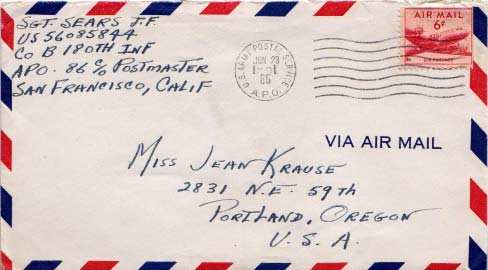 SGT. SEARS J.F.
US56085844
CO B 180TH INF
APO. 86 C/O POSTMASTER
SAN FRANCISCO, CALIF
U.S. ARMY POSTAL SERVICE
JUN 23
A.P.O.
AIR MAIL
6¢
U.S. POSTAGE
VIA AIR MAIL
MISS JEAN KRAUSE
2831 N.E. 59th
PORTLAND, OREGON
U.S.A.